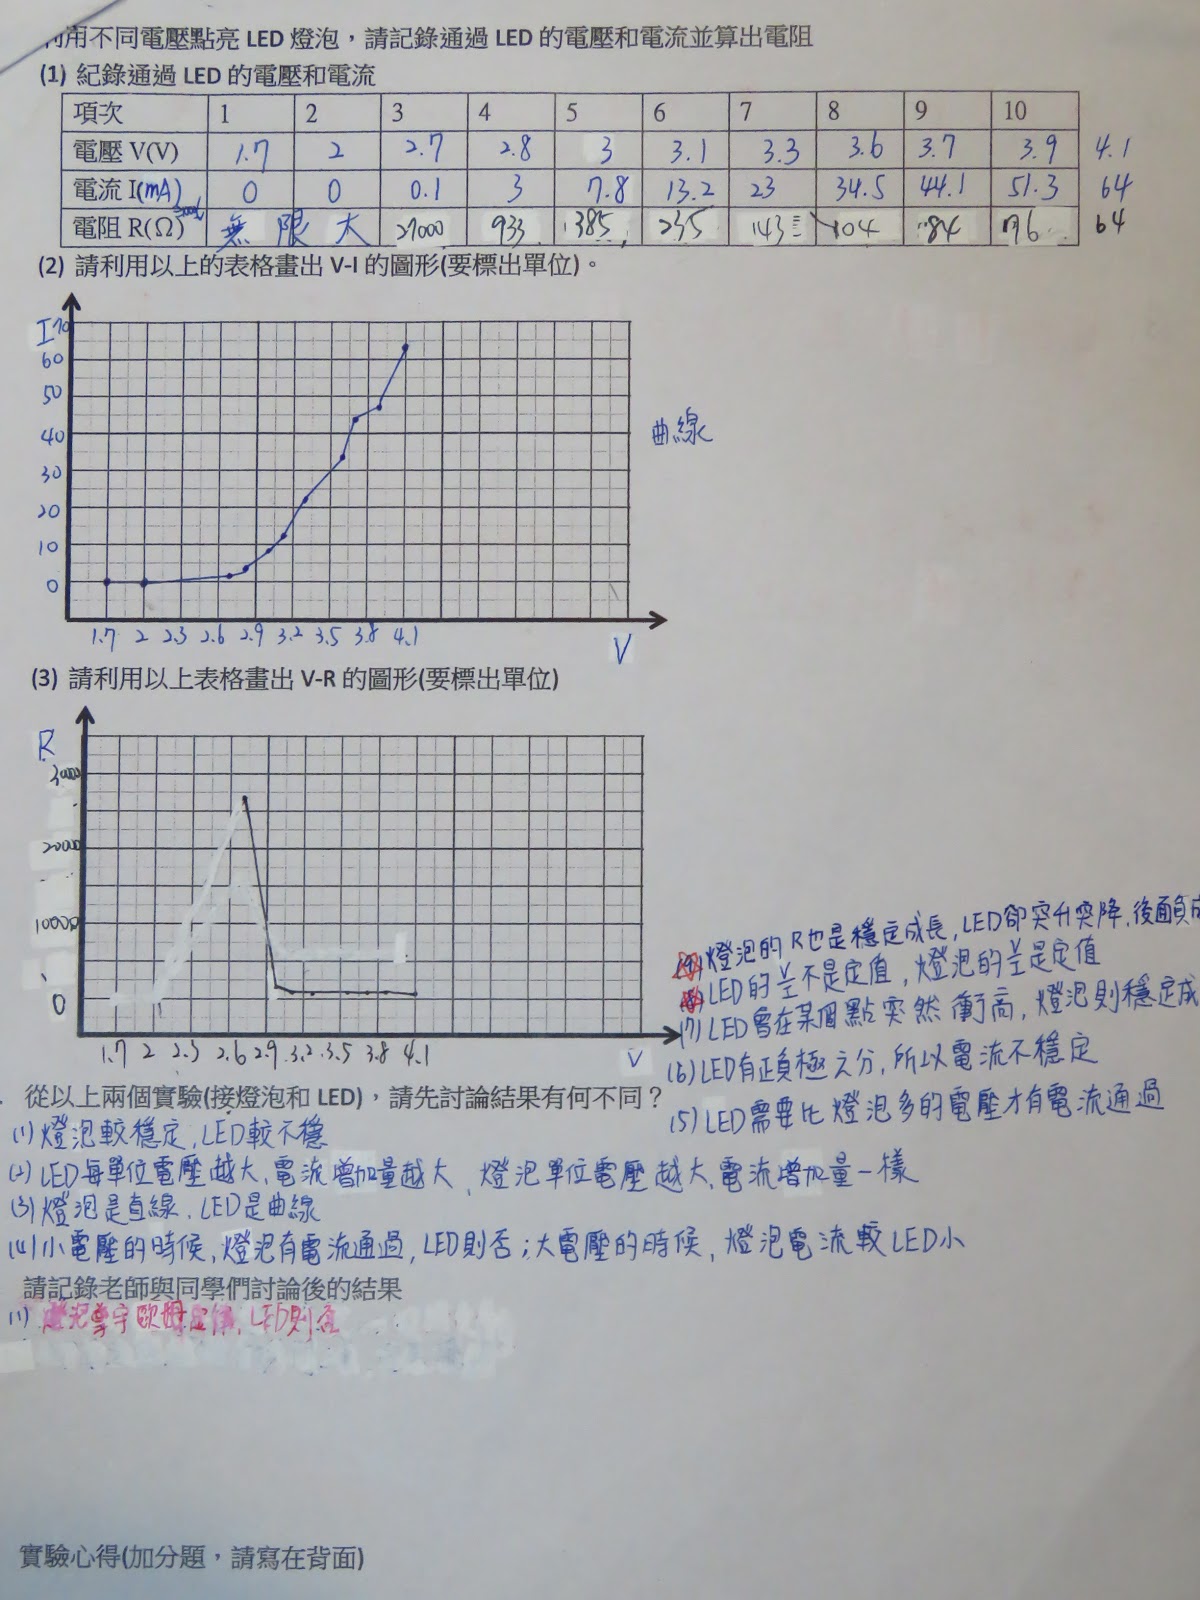 利用不同電壓點亮 LED 燈泡，請記錄通過 LED 的電壓和電流並算出電阻
(1) 紀錄通過 LED 的電壓和電流
項次 1 2 3 4 5 6 7 8 9 10
電壓 V(V) 1.7 2 2.7 2.8 3 3.1 3.3 3.6 3.7 3.9 4.1
電流 I(mA) 0 0 0.1 3 7.8 13.2 23 34.5 44.1 51.3 64
電阻 R(Ω) 無限大 27000 933 385 235 143 104 84 76 64
(2) 請利用以上的表格畫出 V-I 的圖形(要標出單位)。
I 70
60
50
40
30
20
10
0
曲線
1.7 2 2.3 2.6 2.9 3.2 3.5 3.8 4.1 V
(3) 請利用以上表格畫出 V-R 的圖形(要標出單位)
R
30000
20000
10000
0
1.7 2 2.3 2.6 2.9 3.2 3.5 3.8 4.1 V
燈泡的 R也是穩定成長, LED卻突升突降, 後面負成
LED的 V/I 不是定值, 燈泡的 V/I 是定值
(7) LED會在某個點突然衝高, 燈泡則穩定成
(6) LED有正負極之分, 所以電流不穩定
(5) LED需要比燈泡多的電壓才有電流通過
從以上兩個實驗(接燈泡和 LED)，請先討論結果有何不同？
(1) 燈泡較穩定, LED較不穩
(2) LED每單位電壓越大, 電流增加量越大, 燈泡單位電壓越大, 電流增加量一樣
(3) 燈泡是直線, LED是曲線
(4) 小電壓的時候, 燈泡有電流通過, LED則否; 大電壓的時候, 燈泡電流較LED小
請記錄老師與同學們討論後的結果
(1) 燈泡遵守歐姆定律, LED則否
實驗心得(加分題，請寫在背面)